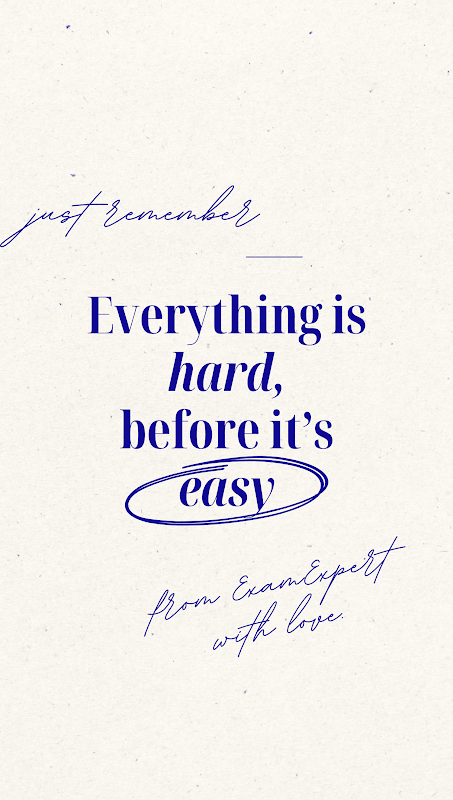 just remember
Everything is
hard,
before it’s
easy
from ExamExpert
with love.